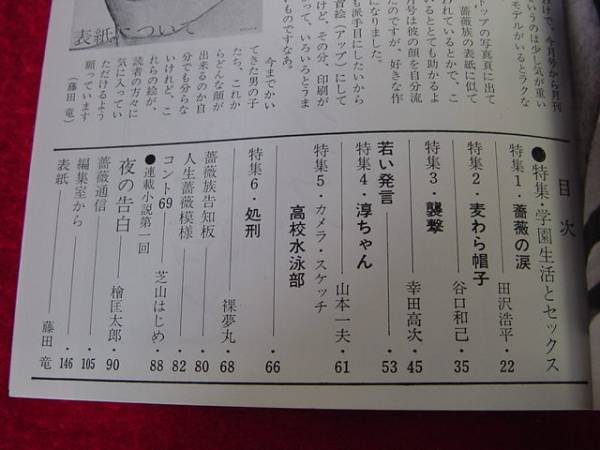 表紙について
で、今月号から月刊
いうのは少し気が重い
モデルがいるとラクな
トップの写真に出て
薔薇族の表紙に似て
われているとかで、こ
いるととても助かるよ
月号は彼の顔を自分流
たのですが、好きな作
になりました。
も派手目にしたいから
絵（アップ）にして
けど、その分、印刷が
って、いろいろとうま
ものですなあ。
今までかい
てきた男の子
たち、これか
らどんな顔が
出来るのか自
分でも分らな
いけれど、こ
れらの絵が、
読者の方々に
気に入ってい
ただけるよう
願っています
（藤田 竜）
目次
●特集・学園生活とセックス
特集1・薔薇の涙 田沢浩平・22
特集2・麦わら帽子 谷口和己・35
特集3・襲撃 幸田高次・45
若い発言・53
特集4・淳ちゃん 山本一夫・61
特集5・カメラ・スケッチ
高校水泳部・66
特集6・処刑 裸夢丸・68
薔薇族告知板・80
人生薔薇模様・82
コント69 芝山はじめ・88
●連載小説第一回
夜の告白 檜匡太郎・90
薔薇通信・105
編集室から・146
表紙 藤田 竜